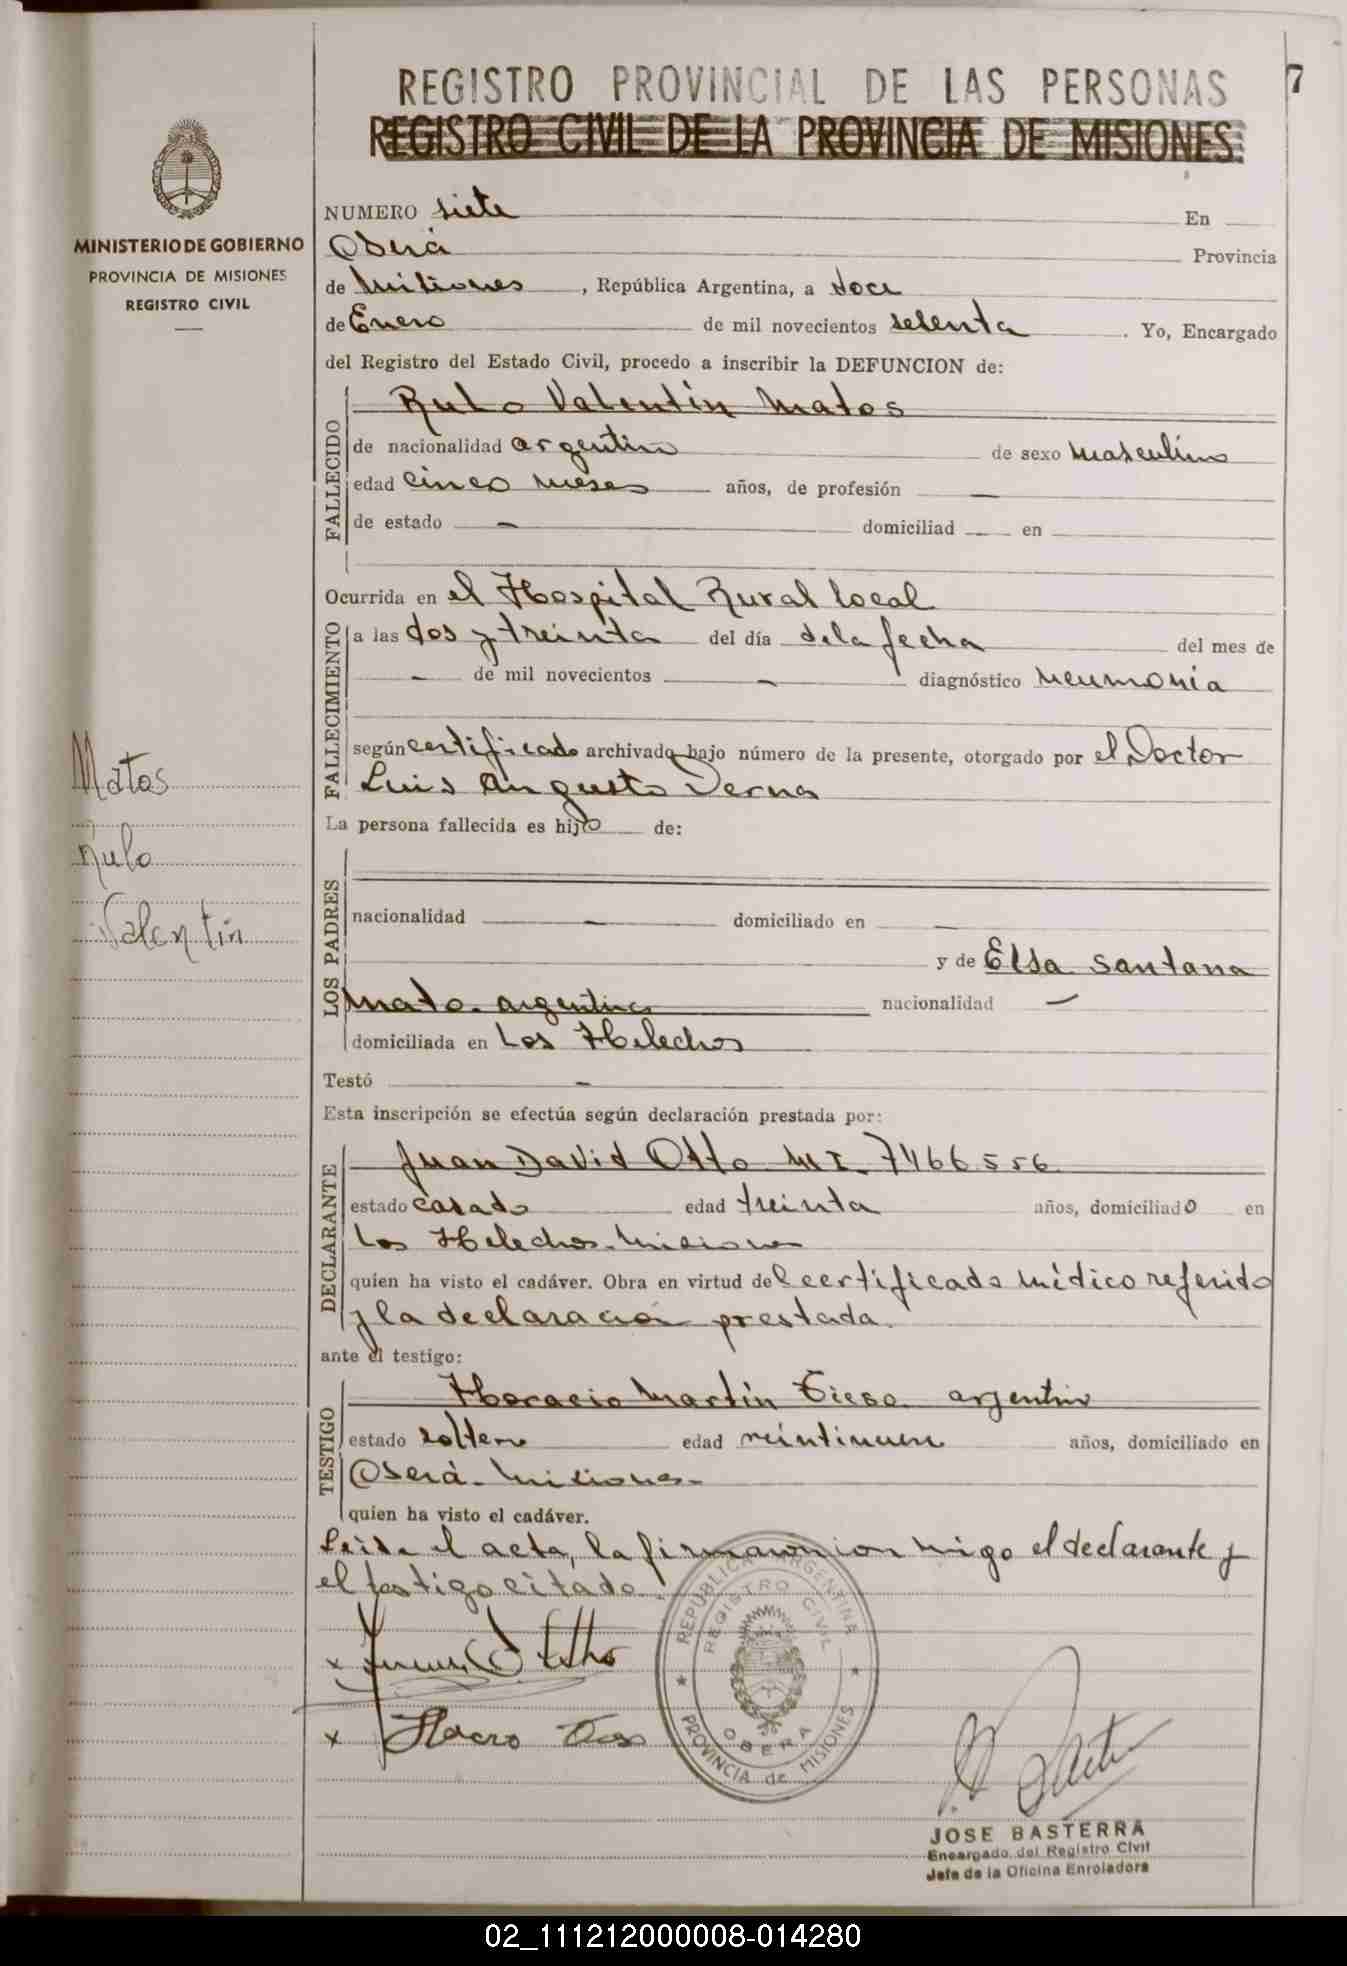 REGISTRO PROVINCIAL DE LAS PERSONAS
7
REGISTRO CIVIL DE LA PROVINCIA DE MISIONES
MINISTERIO DE GOBIERNO
PROVINCIA DE MISIONES
REGISTRO CIVIL
NUMERO siete En
Oberá Provincia
de Misiones, República Argentina, a doce
de Enero de mil novecientos setenta. Yo, Encargado
del Registro del Estado Civil, procedo a inscribir la DEFUNCION de:
FALLECIDO
Rulo Valentín Matos
de nacionalidad argentino de sexo masculino
edad cinco meses años, de profesión —
de estado — domiciliad — en
Ocurrida en el Hospital Rural local
FALLECIMIENTO
a las dos y treinta del día de la fecha del mes de
— de mil novecientos — diagnóstico neumonia
según certificado archivado bajo número de la presente, otorgado por el Doctor
Luis Augusto Verna
La persona fallecida es hijo de:
LOS PADRES
nacionalidad — domiciliado en —
y de Elsa Santana
Mato. argentina nacionalidad —
domiciliada en Los Helechos
Testó —
Esta inscripción se efectúa según declaración prestada por:
DECLARANTE
Juan David Otto M I. 7466556
estado casado edad treinta años, domiciliado en
Los Helechos. Misiones
quien ha visto el cadáver. Obra en virtud del certificado médico referido
y la declaración prestada.
ante el testigo:
TESTIGO
Horacio Martín argentino
estado soltero edad veintinueve años, domiciliado en
Oberá. Misiones.
quien ha visto el cadáver.
Leida el acta, la firman conmigo el declarante y
el testigo citado.
Matos
Rulo
Valentín
REPUBLICA ARGENTINA
REGISTRO CIVIL
OBERA
PROVINCIA de MISIONES
JOSE BASTERRA
Encargado del Registro Civil
Jefe de la Oficina Enroladora
02_111212000008-014280